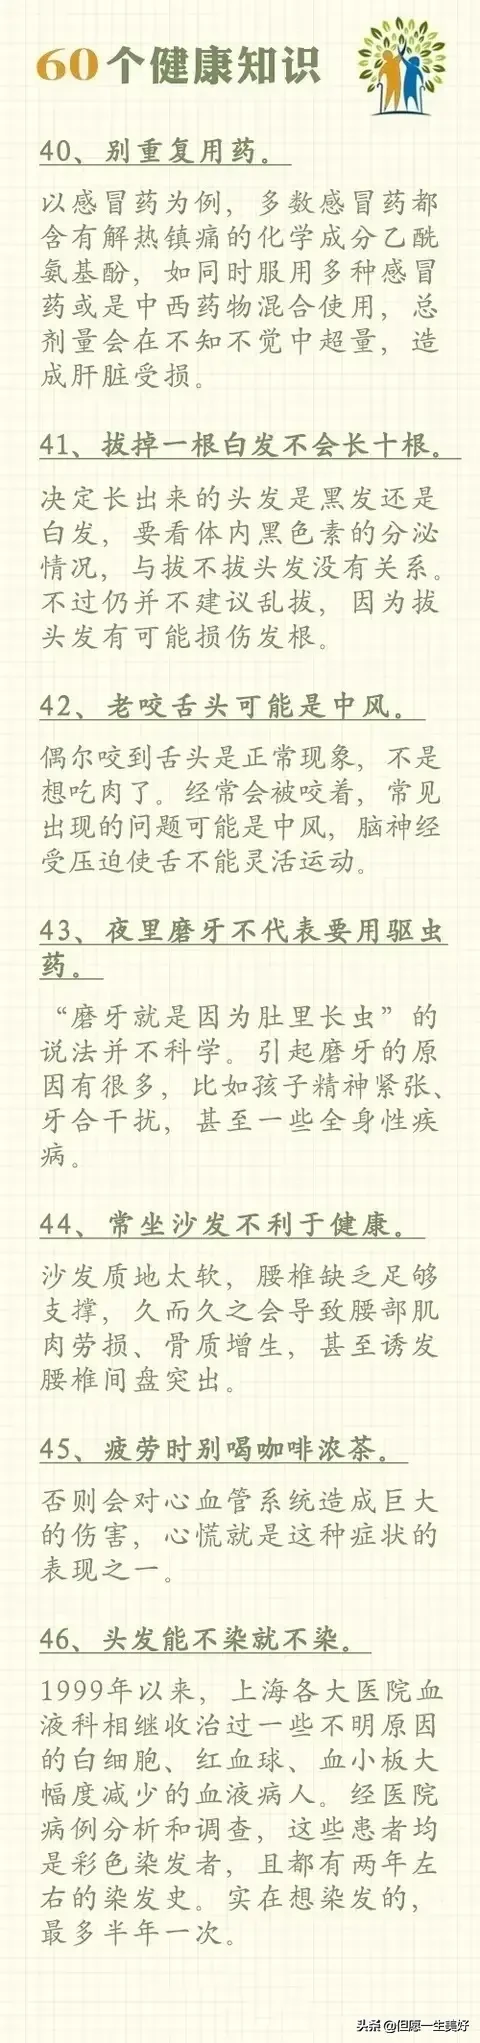 60个健康知识
40、别重复用药。
以感冒药为例，多数感冒药都
含有解热镇痛的化学成分乙酰
氨基酚，如同时服用多种感冒
药或是中西药物混合使用，总
剂量会在不知不觉中超量，造
成肝脏受损。
41、拔掉一根白发不会长十根。
决定长出来的头发是黑发还是
白发，要看体内黑色素的分泌
情况，与拔不拔头发没有关系。
不过仍并不建议乱拔，因为拔
头发有可能损伤发根。
42、老咬舌头可能是中风。
偶尔咬到舌头是正常现象，不是
想吃肉了。经常会被咬着，常见
出现的问题可能是中风，脑神经
受压迫使舌不能灵活运动。
43、夜里磨牙不代表要用驱虫
药。
“磨牙就是因为肚里长虫”的
说法并不科学。引起磨牙的原
因有很多，比如孩子精神紧张、
牙合干扰，甚至一些全身性疾
病。
44、常坐沙发不利于健康。
沙发质地太软，腰椎缺乏足够
支撑，久而久之会导致腰部肌
肉劳损、骨质增生，甚至诱发
腰椎间盘突出。
45、疲劳时别喝咖啡浓茶。
否则会对心血管系统造成巨大
的伤害，心慌就是这种症状的
表现之一。
46、头发能不染就不染。
1999年以来，上海各大医院血
液科相继收治过一些不明原因
的白细胞、红血球、血小板大
幅度减少的血液病人。经医院
病例分析和调查，这些患者均
是彩色染发者，且都有两年左
右的染发史。实在想染发的，
最多半年一次。
头条 @但愿一生美好